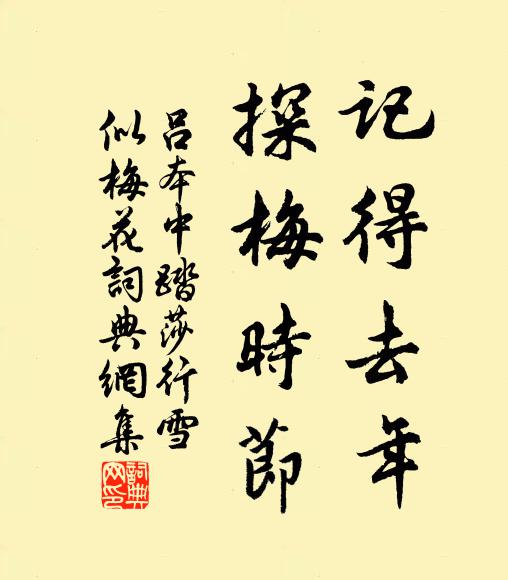 記得去年
探梅時節
呂本中踏莎行雪
似梅花詞典網集
詞典
网印